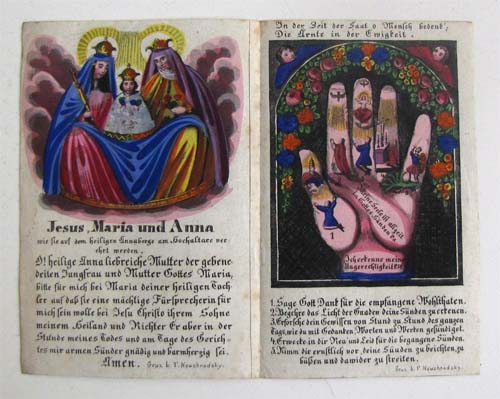 Jesus, Maria und Anna
wie sie auf dem heiligen Annaberge am Hochaltare ver-
ehrt werden.
O! heilige Anna liebreiche Mutter der gebene-
deiten Jungfrau und Mutter Gottes Maria,
bitte für mich bei Maria deiner heiligen Toch-
ter auf daß sie eine mächtige Fürsprecherin für
mich sein wolle bei Jesu Christo ihrem Sohne
meinem Heiland und Richter Er aber in der
Stunde meines Todes und am Tage des Gerich-
tes mir armen Sünder gnädig und barmherzig sei.
Amen.
In der Zeit der Saat o Mensch bedenk',
Die Ernte in der Ewigkeit.
1
Meine Seele ist allzeit
in Gottes Händen
Ich erkenne meine
Ungerechtigkeit
1. Sage Gott Dank für die empfangene Wohlthaten.
2. Begehre das Licht der Gnaden deine Sünden zu erkennen.
3. Erforsche dein Gewissen von Stund zu Stund des ganzen
Tags, wie du mit Gedanken, Worten und Werken gesündiget.
4. Erwecke in dir Reu und Leid für die begangene Sünden.
5. Nimm dir ernstlich vor, deine Sünden zu beichten, zu
büßen und dawider zu streiten.